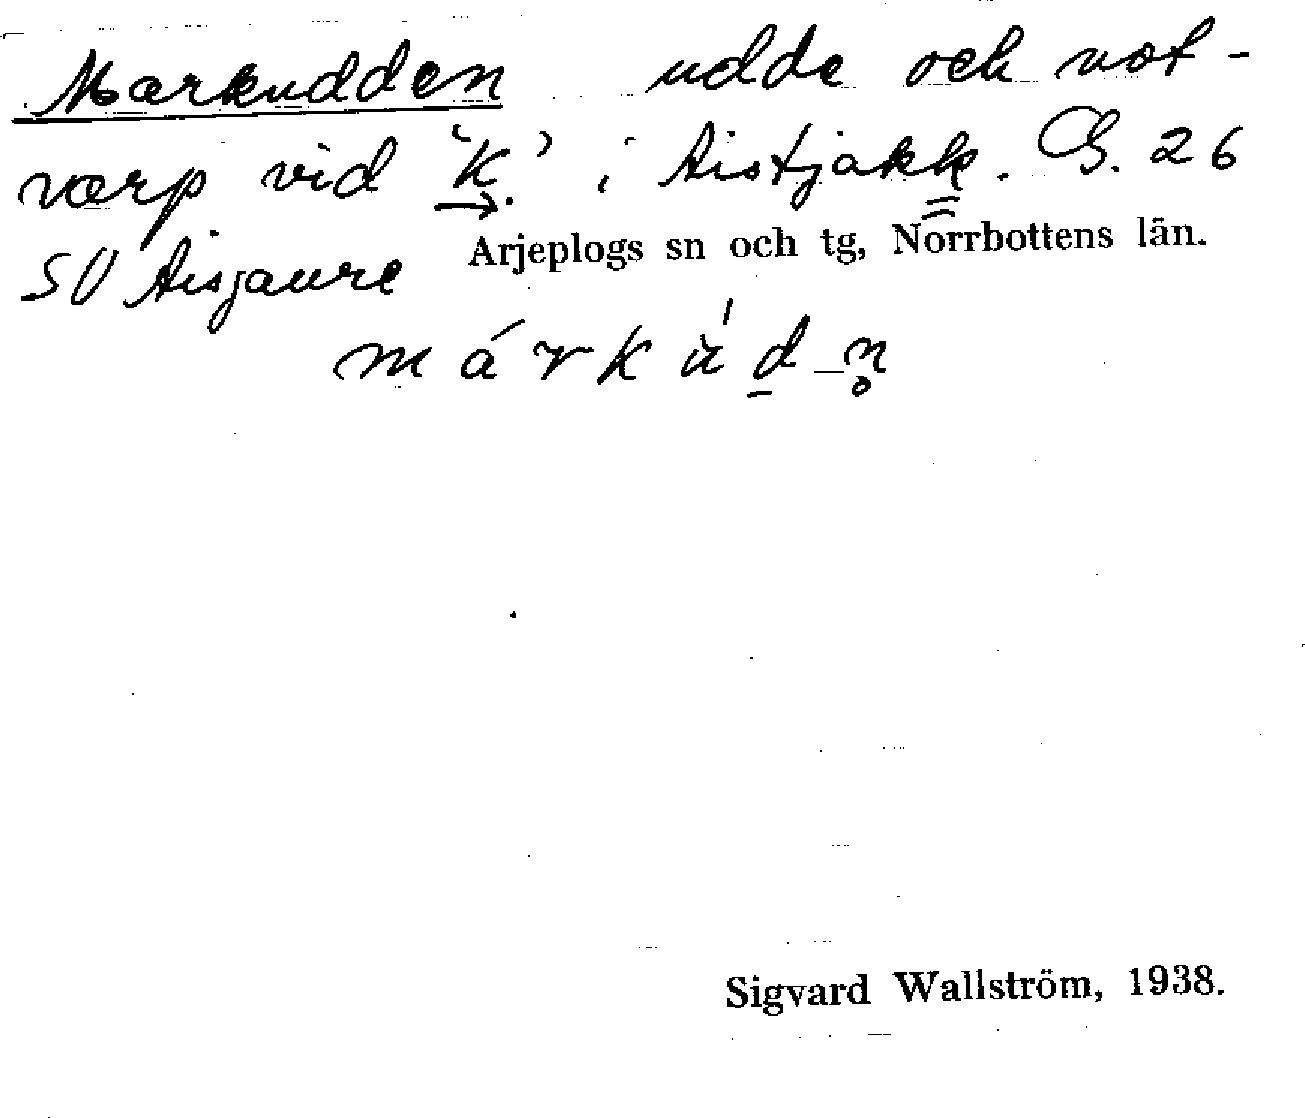 Markudden udde och not-
varp vid 'K.' i Aistjakk. G. 26
SV Aisjaure Arjeplogs sn och tg, Norrbottens län.
Sigvard Wallström, 1938.